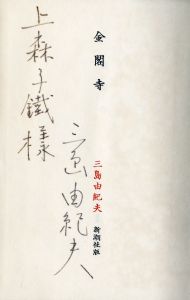 金閣寺
三島由紀夫
新潮社版
三島由紀夫
上森子鐵様